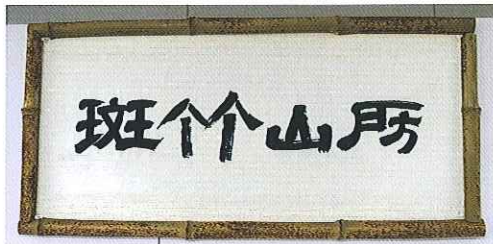 斑竹山房